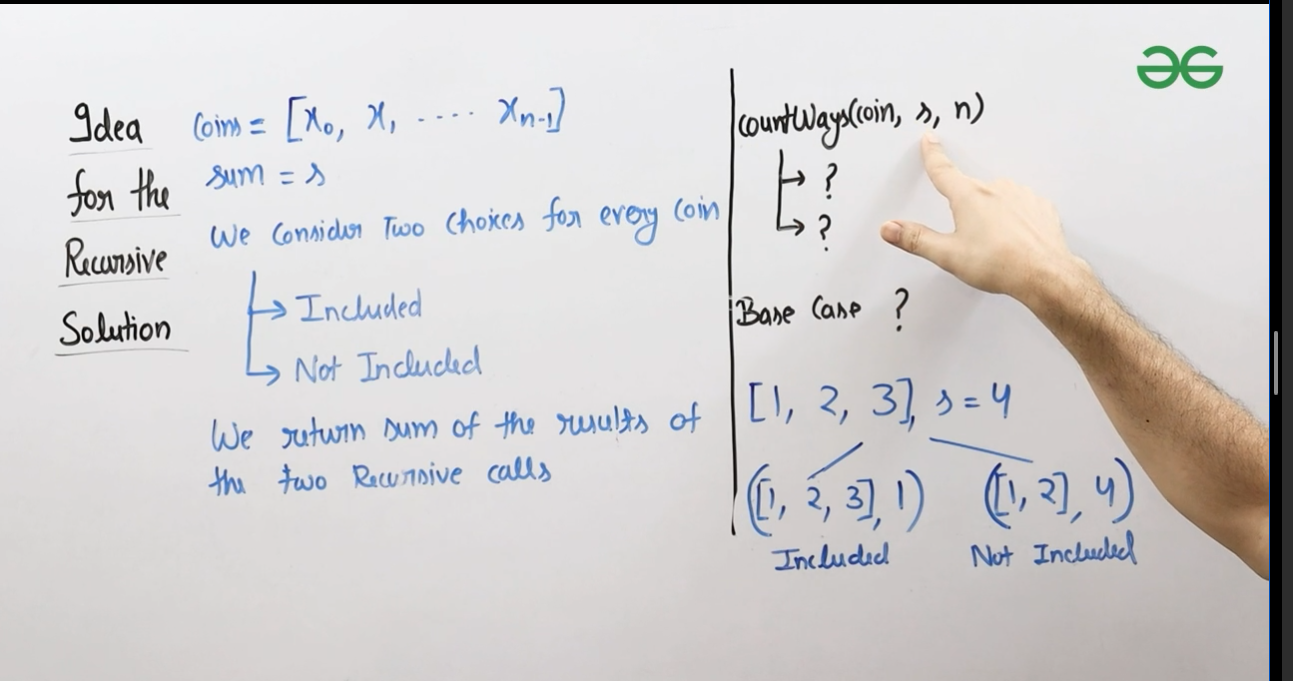 Idea
for the
Recursive
Solution
Coins = [x0, x1 ..... xn-1]
sum = s
We Consider Two Choices for every Coin
Included
Not Included
We return sum of the results of
the two Recursive calls
countWays(coin, s, n)
?
?
Base Case ?
[1, 2, 3], s = 4
([1, 2, 3], 1) ([1, 2], 4)
Included Not Included